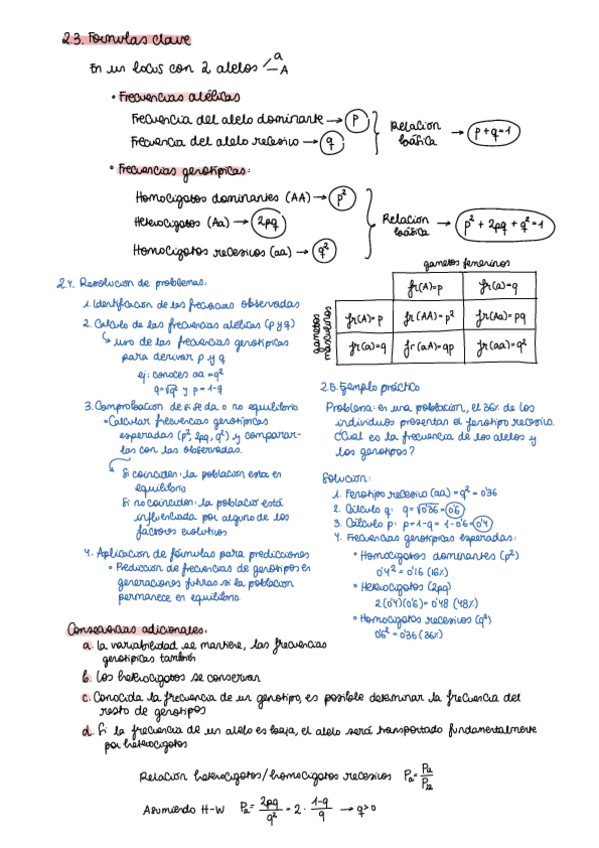 2.3. Fórmulas clave
En un locus con 2 alelos
a
A
• Frecuencias alélicas
Frecuencia del alelo dominante → p
Frecuencia del alelo recesivo → q
Relación básica → p+q=1
• Frecuencias genotípicas:
Homocigotos dominantes (AA) → p²
Heterocigotos (Aa) → 2pq
Homocigotos recesivos (aa) → q²
Relación básica → p² + 2pq + q² = 1
gametos femeninos
gametos masculinos
fr(A)=p fr(a)=q
fr(A)=p fr(AA)=p² fr(Aa)=pq
fr(a)=q fr(aA)=qp fr(aa)=q²
2.4. Resolución de problemas:
1. Identificación de las frecuencias observadas
2. Cálculo de las frecuencias alélicas (p y q)
↳ uso de las frecuencias genotípicas
para derivar p y q
ej: conoces aa = q²
q=√q² y p=1-q
3. Comprobación de si se da o no equilibrio
• Calcular frecuencias genotípicas
esperadas (p², 2pq, q²) y comparar-
las con las observadas.
Si coinciden: la población está en
equilibrio
Si no coinciden: la població está
influenciada por alguno de los
factores evolutivos
4. Aplicación de fórmulas para predicciones
• Predicción de frecuencias de genotipos en
generaciones futuras si la población
permanece en equilibrio.
2.5. Ejemplo práctico
Problema: en una población, el 36% de los
individuos presentan el fenotipo recesivo.
¿Cuál es la frecuencia de los alelos y
los genotipos?
Solución:
1. Fenotipo recesivo (aa) = q² = 0'36
2. Cálculo q: q=√0'36 = 0'6
3. Cálculo p: p=1-q = 1-0'6=0'4
4. Frecuencias genotípicas esperadas:
• Homocigotos dominantes (p²)
0'4² = 0'16 (16%)
• Heterocigotos (2pq)
2(0'4)(0'6)= 0'48 (48%)
• Homocigotos recesivos (q²)
0'6² = 0'36 (36%)
Consecuencias adicionales:
a. La variabilidad se mantiene, las frecuencias
genotípicas también
b. Los heterocigotos se conservan
c. Conocida la frecuencia de un genotipo, es posible determinar la frecuencia del
resto de genotipos
d. Si la frecuencia de un alelo es baja, el alelo será transportado fundamentalmente
por heterocigotos
Relación heterocigotos/homocigotos recesivos
Asumiendo H-W = 2pq/q² = 2 · 1-q/q → q>0